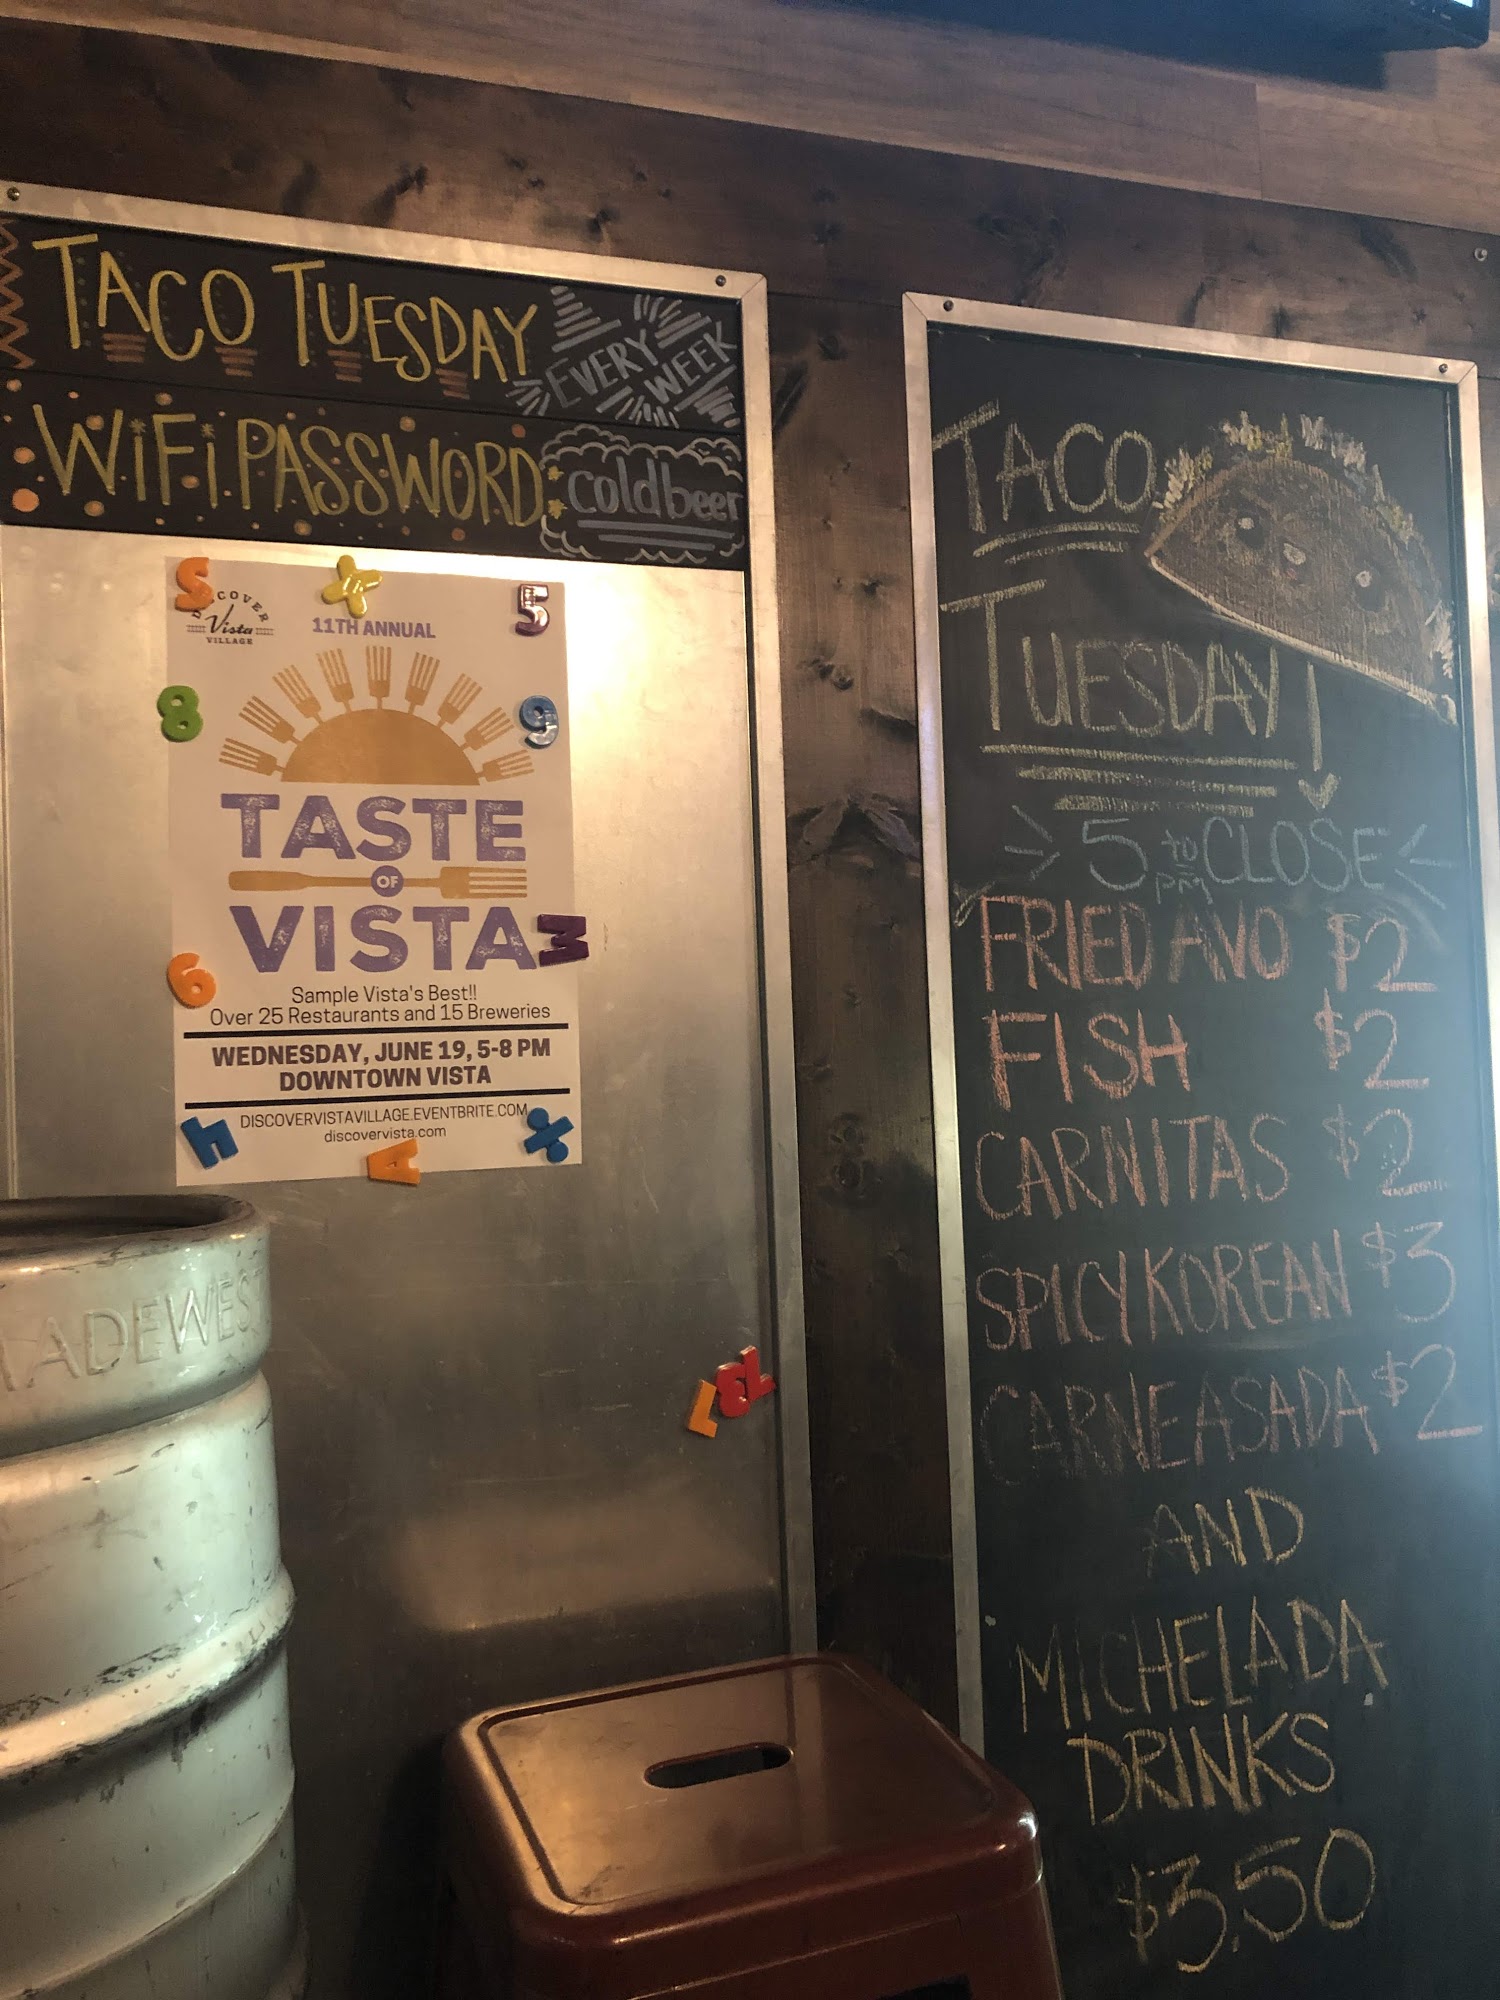 TACO TUESDAY
EVERY
WEEK
WiFi PASSWORD
cold beer
DISCOVER
Vista
VILLAGE
11TH ANNUAL
TASTE
OF
VISTA
Sample Vista's Best!!
Over 25 Restaurants and 15 Breweries
WEDNESDAY, JUNE 19, 5-8 PM
DOWNTOWN VISTA
DISCOVERVISTAVILLAGE.EVENTBRITE.COM
discovervista.com
S
5
8
9
6
M
h
A
÷
ADEWES
TACO
TUESDAY!
5 PM TO CLOSE
FRIED AVO $2
FISH $2
CARNITAS $2
SPICY KOREAN $3
CARNE ASADA $2
AND
MICHELADA
DRINKS
$3.50